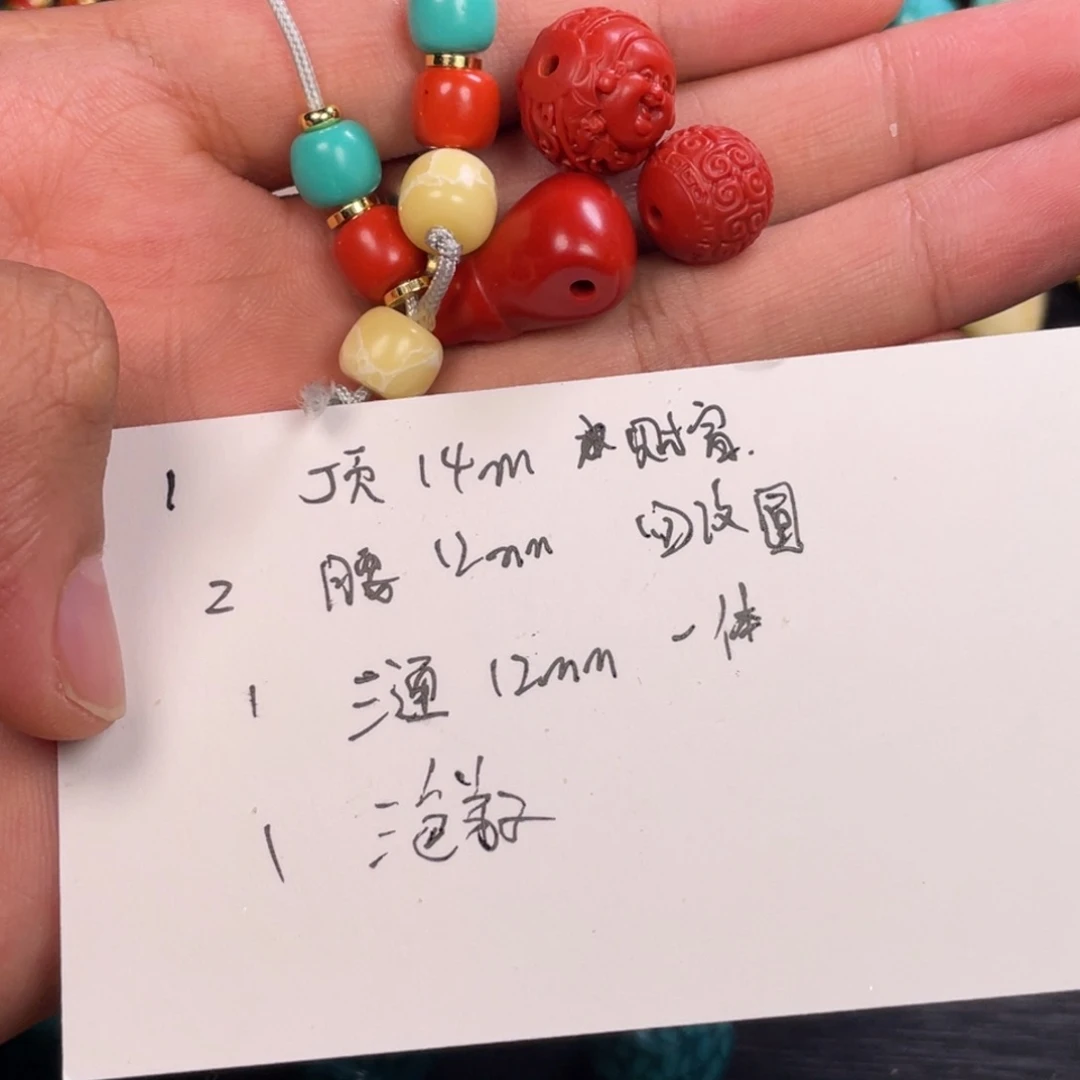 1 顶 14m 财富.
2 腰 12mm 回纹圆
1 三通 12mm 一体
1